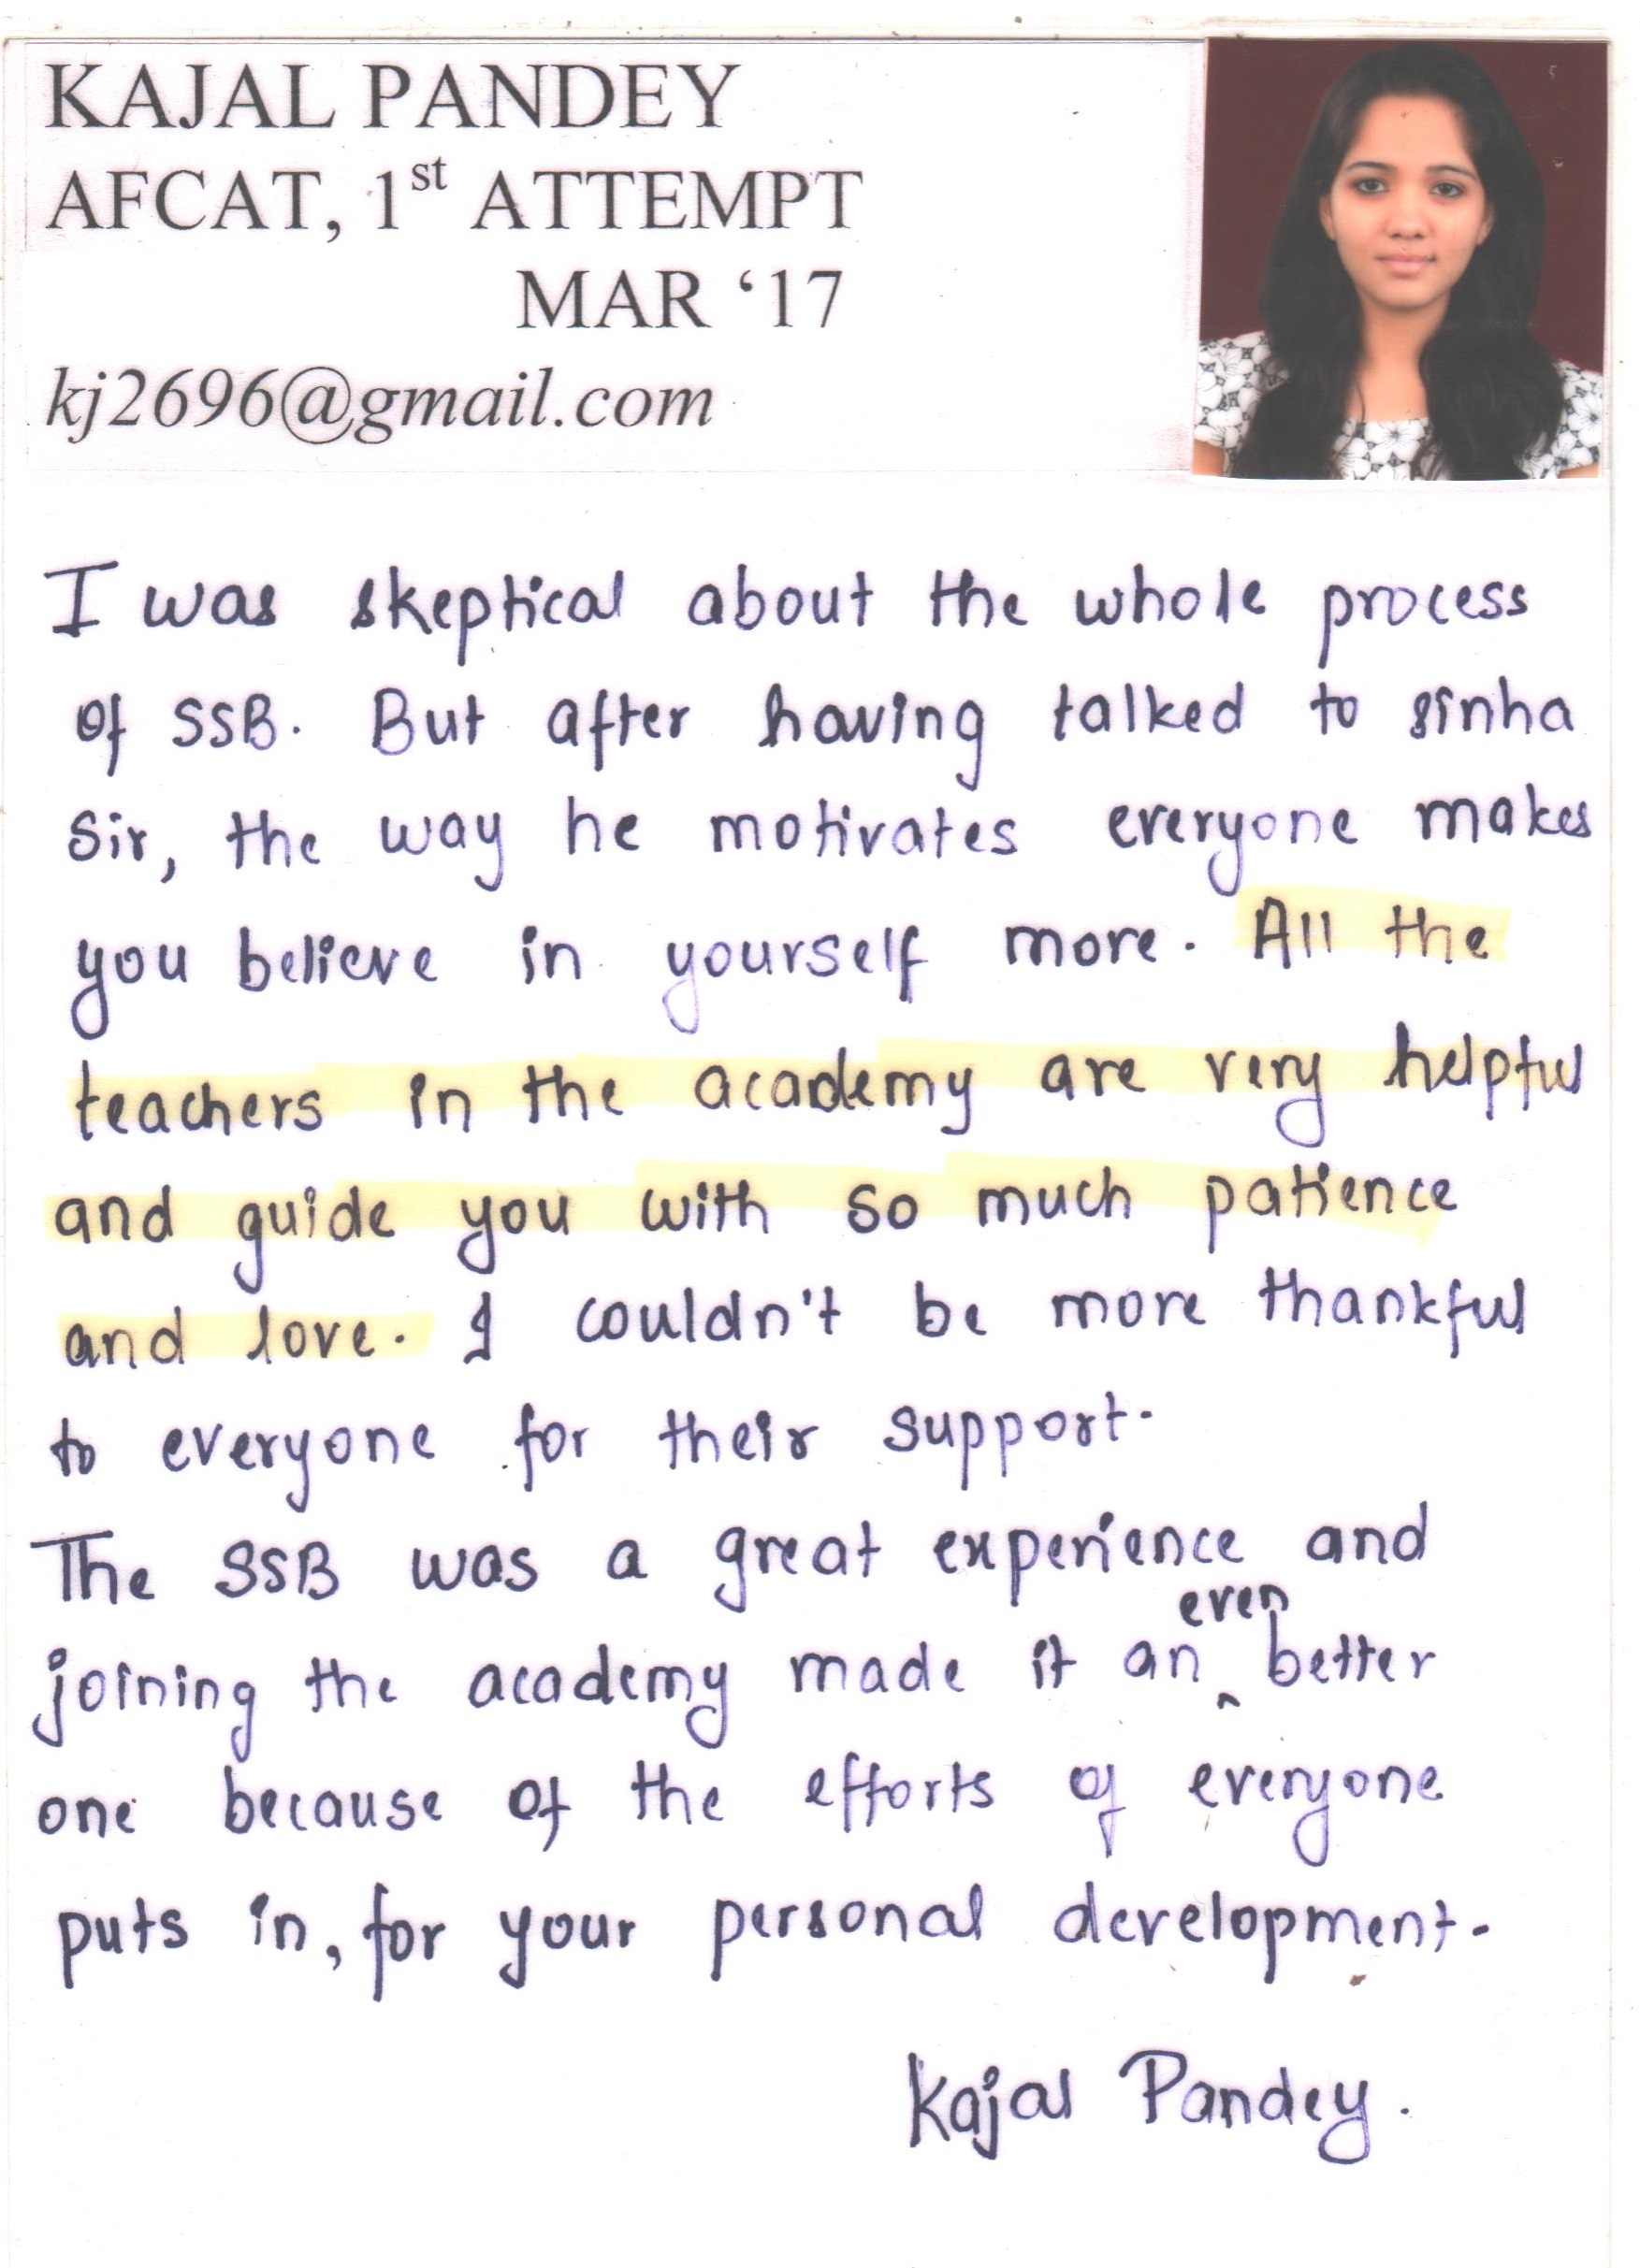 KAJAL PANDEY
AFCAT, 1st ATTEMPT
MAR ‘17
kj2696@gmail.com
I was skeptical about the whole process
of SSB. But after having talked to sinha
Sir, the way he motivates everyone makes
you believe in yourself more. All the
teachers in the academy are very helpful
and guide you with so much patience
and love. I couldn't be more thankful
to everyone for their support.
The SSB was a great experience and
joining the academy made it an even better
one because of the efforts of everyone
puts in, for your personal development.
Kajal Pandey.